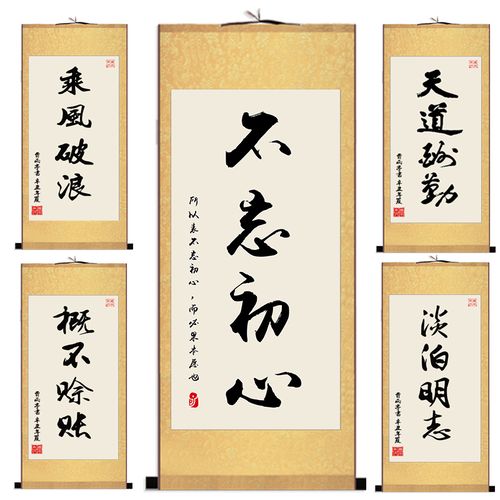 乘风破浪
不忘初心
所以表不忘初心，而必果本愿也
天道酬勤
概不赊账
淡泊明志